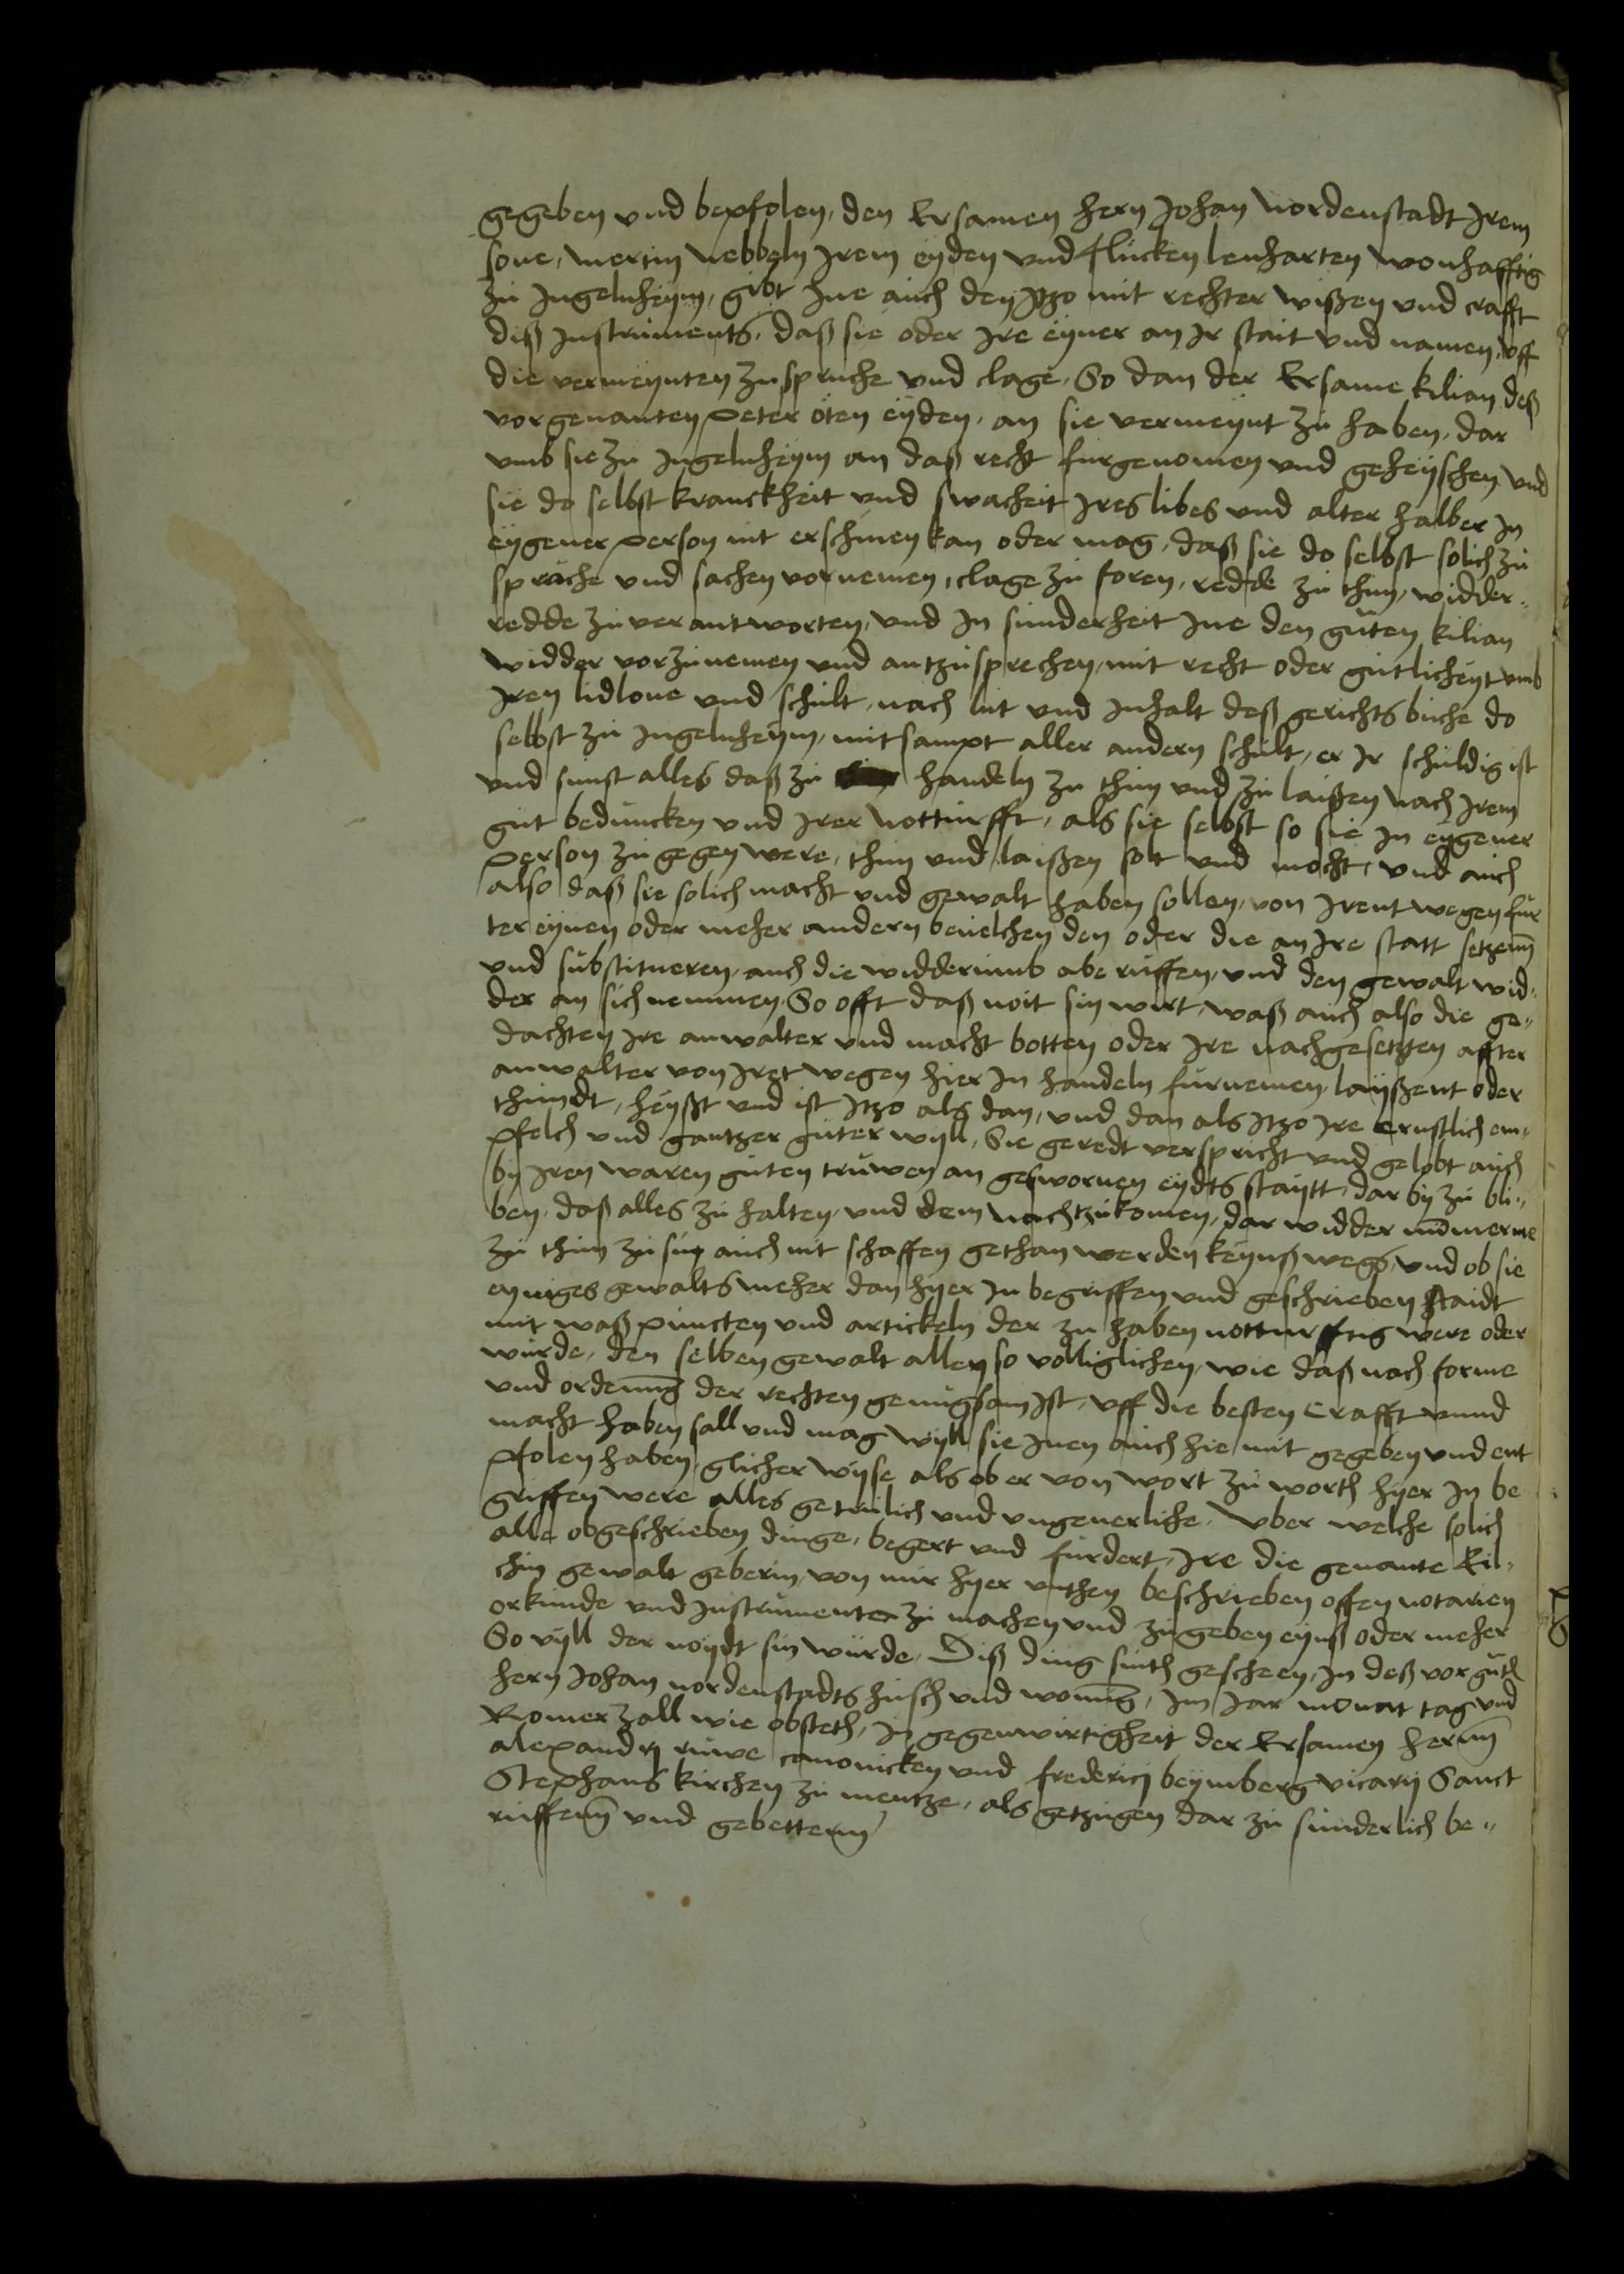 gegeben vnd bepfolen, den Ersamen hern Johan Nordenstadt Irem
sone, Mertin Nebbeln Irem eyden vnd Flucken lenharten wonhafftig
zu Jngelnheym, gibt Ine auch den Itzo mit rechter wißen vnd crafft
diß Jnstruments, daß sie oder Ire eyner an Ir stait vnd namen, vff
die vermeynten zuspruche vnd clage, So dan der Ersame kilian deß
vorgenanten Peter öten eyden, an sie vermeynt zu haben, dar
vmb sie zu Jngelnheym an daß recht furgenomen vnd geheyschen vnd
sie do selbst kranckheit vnd swacheit Jres libes vnd alter halber in
eygener Person nit erschinen kan oder mag, daß sie do selbst solich zu
spruche vnd sachen vornemen, clage zu foren, redde zu thun, widder„
redde zu verantworten, vnd In sunderheit Ine den guten kilian
widder vorzunemen vnd antzusprechen, mit recht oder gutlicheyt vmb
Iren lidlone vnd schult, nach lut vnd Inhalt deß gerichts buche do
selbst zu Jngelnheym, mit sampt aller andern schult, er Ir schuldig ist
vnd sunst alles daß zu handeln zu thun vnd zu laißen nach Irem
gut beduncken vnd Irer notturfft, als sie selbst so sie In eygener
Person zu gegen were, thun vnd laißen solt vnd mocht, vnd auch
also daß sie solich macht vnd gewalt haben sollen, von Irent wegen fur
ter eynen oder meher andern beuelhen den oder die an Ire statt setzenn
vnd substitueren, auch die widderumb abe ruffen, vnd den gewalt wid„
der an sich nemmen, So offt daß noit sin wirt, waß auch also die ge„
dachten Ire anwalter vnd macht botten oder Ire nachgesetzten affter
anwalter von Iret wegen hier In handeln furnemen, layßent oder
thundt, heyßt vnd ist Itzo als dan, vnd dan als Itzo Ire ernstlich em„
pfelch vnd gantzer guter wyll, Sie geredt verspricht vnd gelobt auch
by Iren waren guten truwen an geswornen eydts staytt, dar by zu bli„
ben, daß alles zu halten, vnd dem nachtzukomen, dar widder nummerme
zu thun zu sin auch nit schaffen gethan werden keynß wegs, vnd ob sie
eyniges gewalts meher dan hyer In begriffen vnd geschrieben staidt
mit waß puncten vnd artickeln der zu haben notturfftig were oder
wurde, den selben gewalt allen so volliglichen, wie daß nach forme
vnd ordenung der rechten genugsam Ist, vff die besten Crafft vnnd
macht haben sall vnd mag wyll sie Inen auch hie mit gegeben vnd ent
pfolen haben, glicher wyse als ob er von wort zu worth hyer In be
griffen were alles getrulich vnd vngeuerliche. Vber welche solich
alle obgeschrieben dinge, begert vnd furdert, Ire die genante Eil„
chin gewalt geberin, von mir hyer vnthen beschrieben offen notarien
orkunde vnd Instrumenten zu machen vnd zu geben eynß oder meher
So vyll der noydt sin wurde. Diß ding sinth gescheen, In deß vorgut
hern Johan nordenstadts husch vnd wonung, Im Jar monat tag vnd
Romer zall wie obsteth, In gegenwirtigheit der Ersamen hernn
alexandrj ruwe canonicken vnd frederici beymberg vicarij Sanct
Stephans kirchen zu mentze, als getzugen dar zu sunderlich be„
ruffenn vnd gebettenn